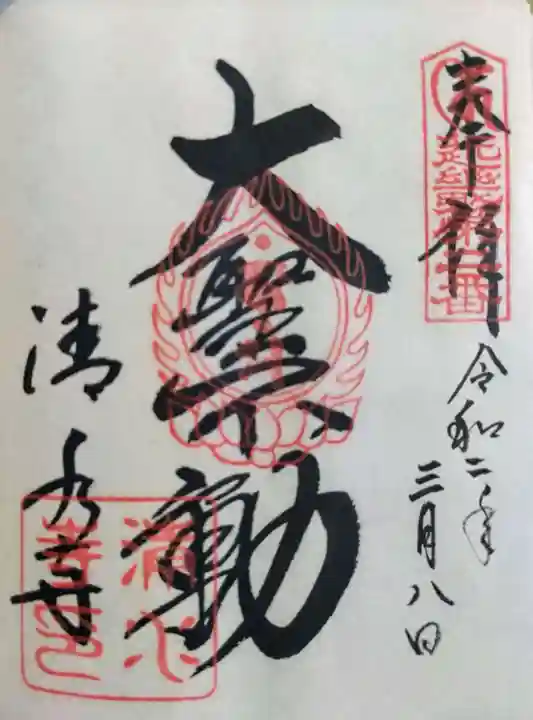 奉拝
令和二年
三月八日
大聖不動
清水寺